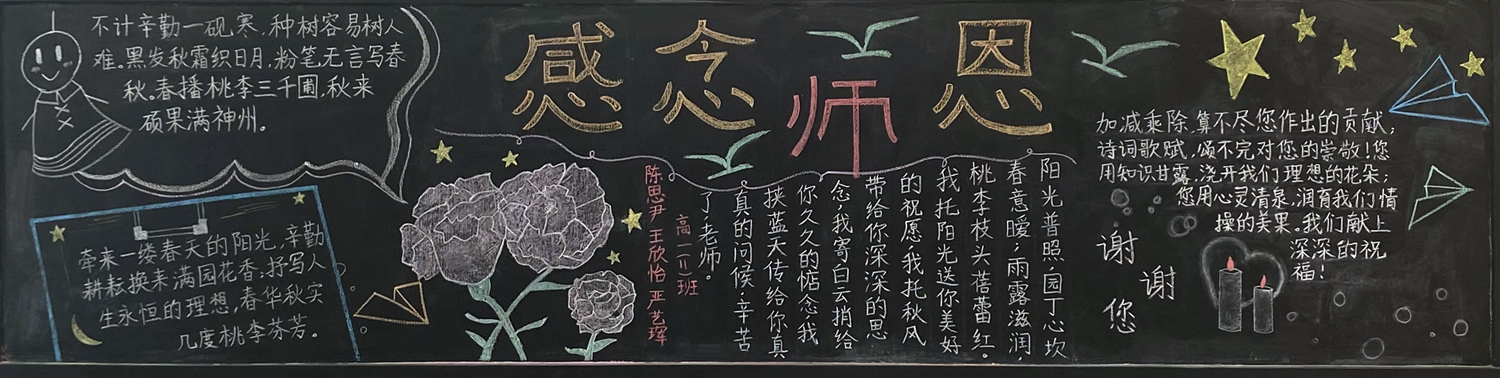 感念师恩
不计辛勤一砚寒,种树容易树人
难。黑发秋霜织日月,粉笔无言写春
秋。春播桃李三千圃,秋来
硕果满神州。
牵来一缕春天的阳光,辛勤
耕耘换来满园花香;抒写人
生永恒的理想,春华秋实
几度桃李芬芳。
阳光普照,园丁心坎
春意暖;雨露滋润,
桃李枝头蓓蕾红。
我托阳光送你美好
的祝愿我托秋风
带给你深深的思
念,我寄白云捎给
你久久的惦念,我
挟蓝天传给你真
真的问候:辛苦
了,老师。
高一(11)班
陈思尹 王欣怡 严艺珲
加减乘除,算不尽您作出的贡献;
诗词歌赋,颂不完对您的崇敬!您
用知识甘露,浇开我们理想的花朵;
您用心灵清泉,润育我们情
操的美果。我们献上
深深的祝
福!
谢
谢
您